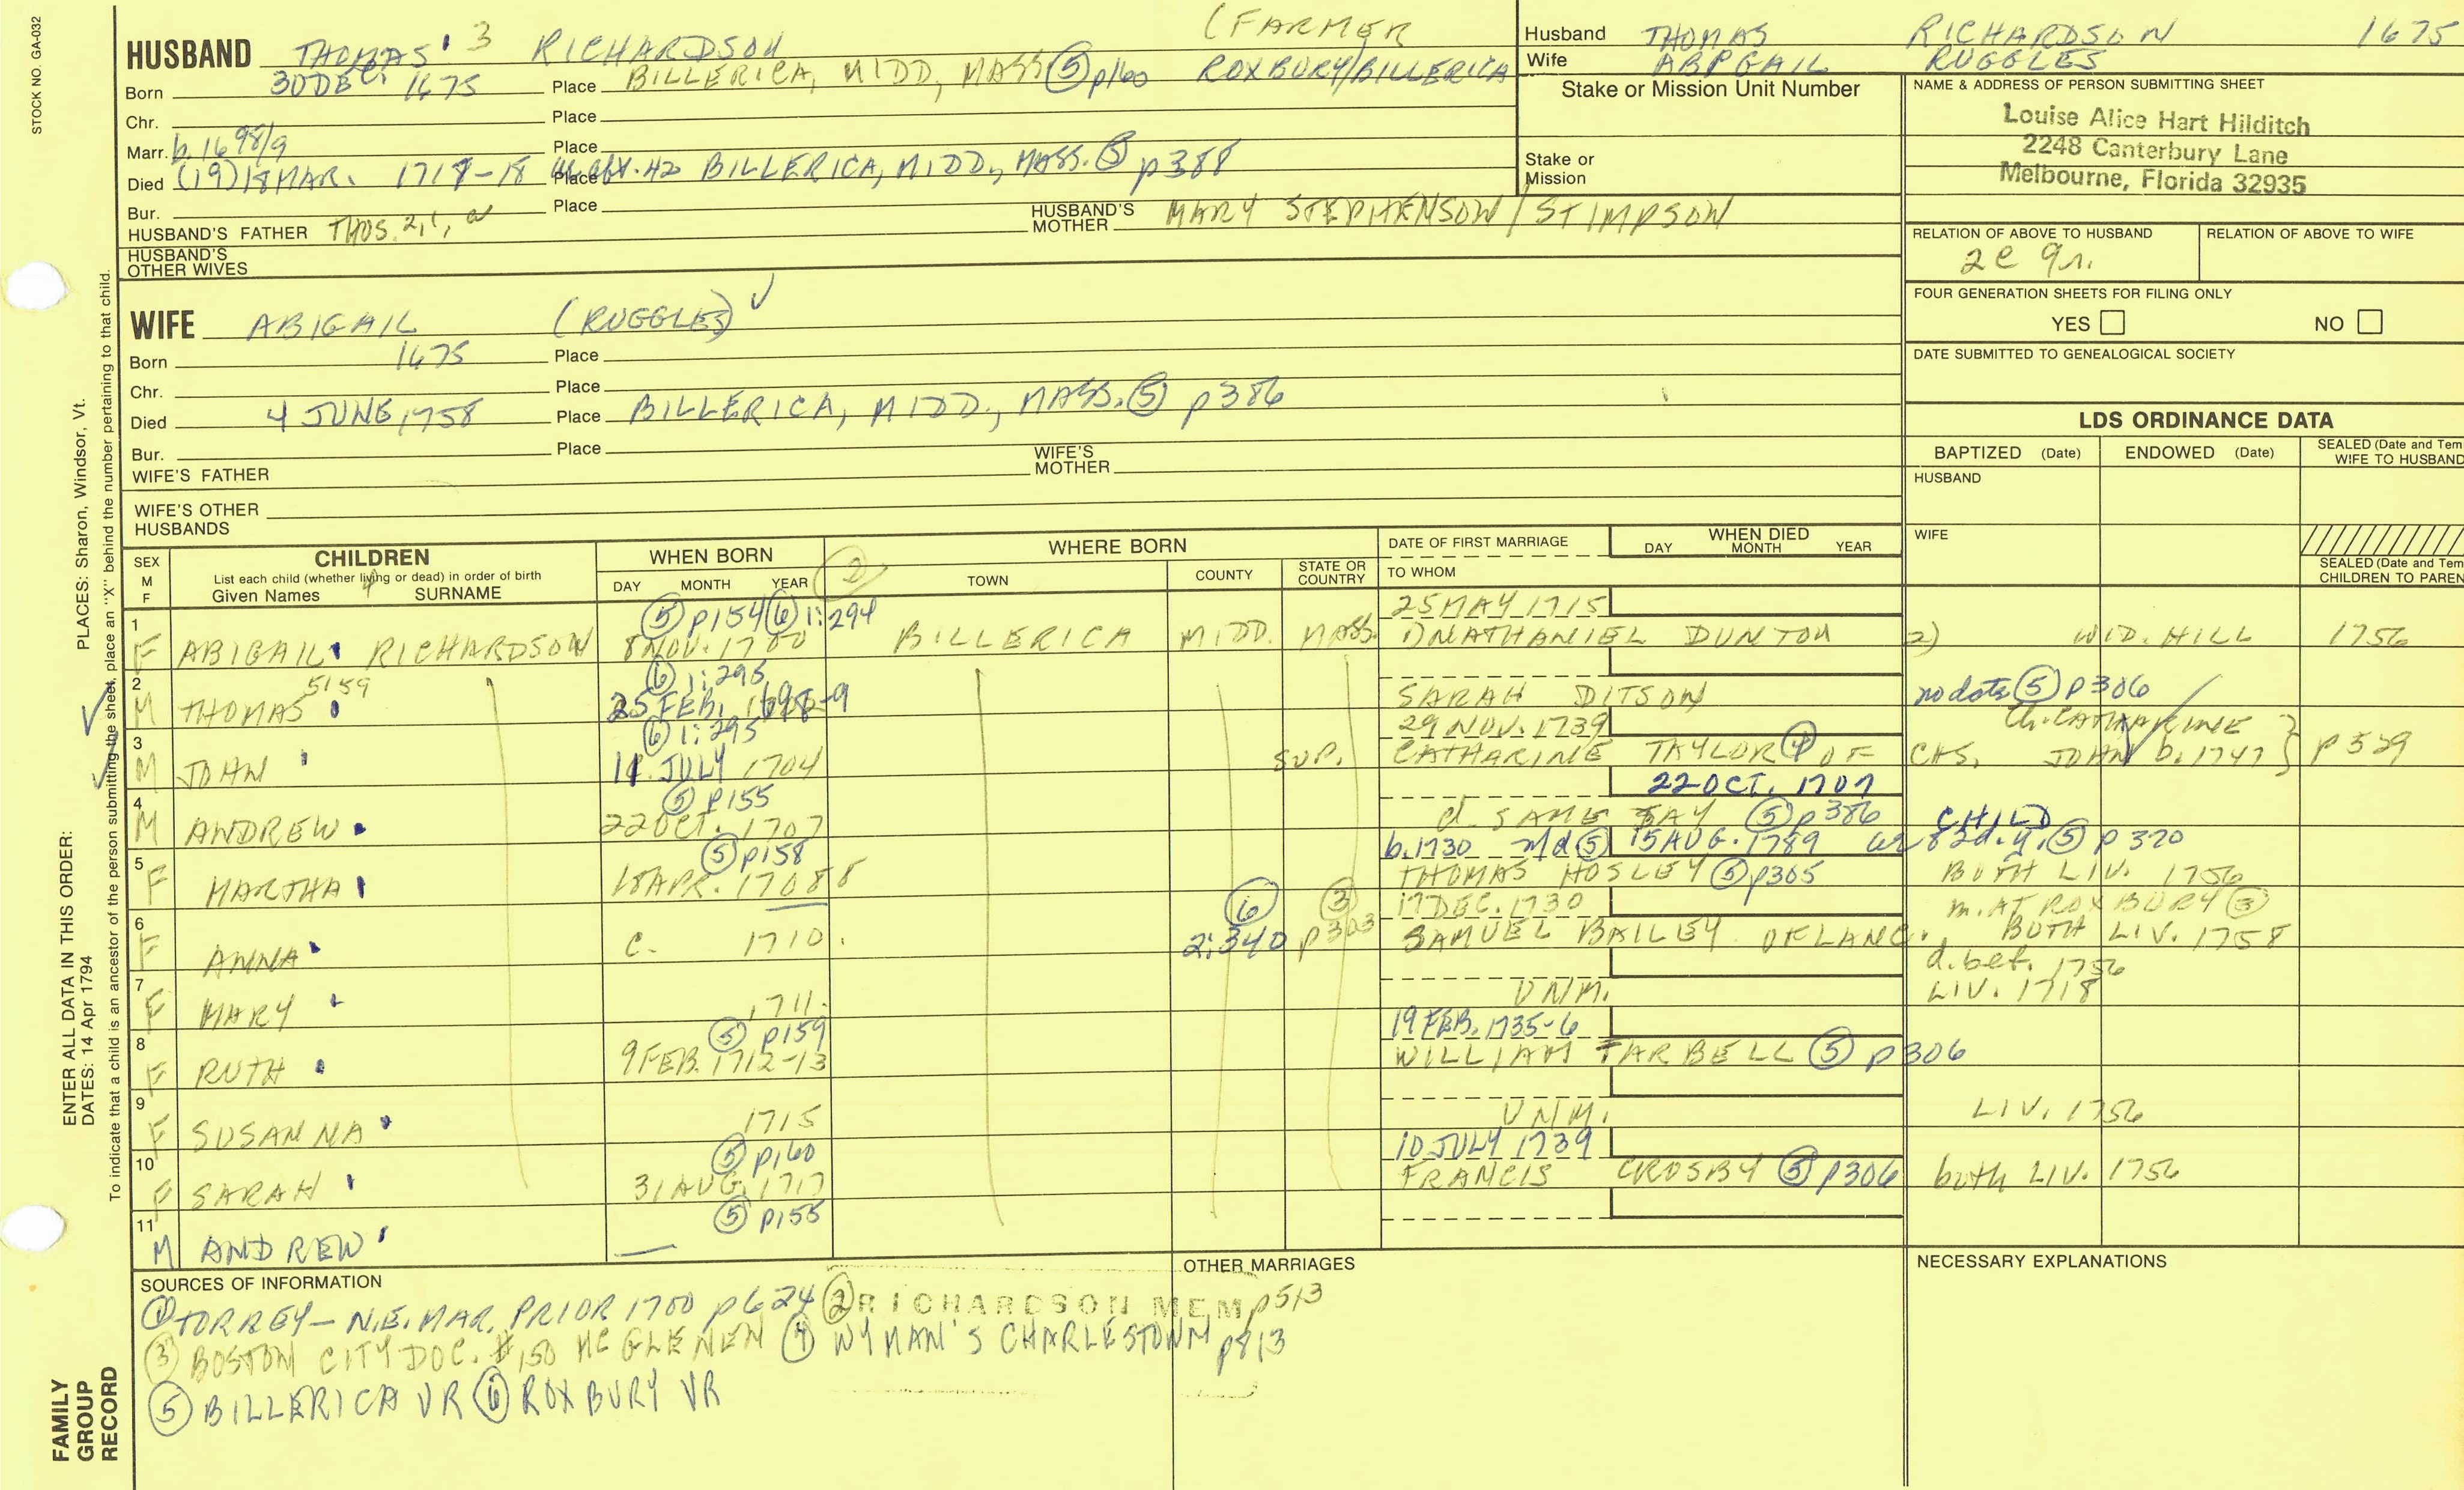 STOCK NO. GA-032
HUSBAND THOMAS 3 RICHARDSON (FARMER
Born 30 DEC. 1675 Place BILLERICA, MIDD, MASS (5) p160 ROXBURY/BILLERICA
Chr. Place
Marr. b. 1698/9 Place
Died (19) 18 MAR. 1717-18 Place BILLERICA, MIDD, MASS. (5) p388
Bur. Place
HUSBAND'S FATHER THOS. 2,1, HUSBAND'S MOTHER MARY STEPHENSON / STIMPSON
HUSBAND'S OTHER WIVES
Husband THOMAS RICHARDSON 1675
Wife ABPGAIL RUGGLES
Stake or Mission Unit Number
Stake or Mission
NAME & ADDRESS OF PERSON SUBMITTING SHEET
Louise Alice Hart Hilditch
2248 Canterbury Lane
Melbourne, Florida 32935
RELATION OF ABOVE TO HUSBAND RELATION OF ABOVE TO WIFE
FOUR GENERATION SHEETS FOR FILING ONLY
YES NO
DATE SUBMITTED TO GENEALOGICAL SOCIETY
WIFE ABIGAIL (RUGGLES) ✓
Born 1675 Place
Chr. Place
Died 4 JUNE, 1758 Place BILLERICA, MIDD., MASS. (5) p386
Bur. Place
WIFE'S FATHER WIFE'S MOTHER
WIFE'S OTHER HUSBANDS
LDS ORDINANCE DATA
BAPTIZED (Date) ENDOWED (Date) SEALED (Date and Tem
WIFE TO HUSBAND
HUSBAND
WIFE
SEALED (Date and Tem
CHILDREN TO PAREN
SEX M F CHILDREN WHEN BORN WHERE BORN DATE OF FIRST MARRIAGE WHEN DIED
List each child (whether living or dead) in order of birth
Given Names SURNAME DAY MONTH YEAR (2) TOWN COUNTY STATE OR COUNTRY TO WHOM DAY MONTH YEAR
(5) p154 (6) 1:294 25 MAY 1715
1 F ABIGAIL RICHARDSON 8 NOV. 1700 BILLERICA MIDD. MASS. 1) NATHANIEL DUNTON 2) WID. HILL 1756
5159 (6) 1:295
2 M THOMAS 25 FEB. 1698-9 SARAH DITSON no date (5) p306
(6) 1:295 29 NOV. 1739 ch. CATHARINE
3 M JOHN 11 JULY 1704 SUP. CATHARINE TAYLOR (4) OF CHS. JOHN b. 1747 } p529
(5) p155 22 OCT. 1707
4 M ANDREW 22 OCT. 1707 d. SAME DAY (5) p386 CHILD
(5) p158 b. 1730 m/d (5) 15 AUG. 1789 82d. y. (5) p320
5 F MARTHA 18 APR. 1708 8 THOMAS HOSLEY (5) p305 BOTH LIV. 1756
(6) (3) 17 DEC. 1730 m. AT ROXBURY (3)
6 F ANNA c. 1710. 2:340 p303 SAMUEL BAILEY OF LANC. BOTH LIV. 1758
d. bef. 1756
7 F MARY 1711. UNM. LIV. 1718
(5) p159 19 FEB. 1735-6
8 F RUTH 9 FEB. 1712-13 WILLIAM TARBELL (5) p306
9 F SUSANNA 1715 UNM. LIV. 1756
(5) p160 10 JULY 1739
10 F SARAH 31 AUG. 1717 FRANCIS CROSBY (5) p306 both LIV. 1756
(5) p155
11 M ANDREW —
SOURCES OF INFORMATION
(1) TORREY — N.E. MAR. PRIOR 1700 p624 (2) RICHARDSON MEM p513
(3) BOSTON CITY DOC. #150 MC GLENEN (4) WYMAN'S CHARLESTOWN p813
(5) BILLERICA VR (6) ROXBURY VR
OTHER MARRIAGES
NECESSARY EXPLANATIONS
ENTER ALL DATA IN THIS ORDER:
DATES: 14 Apr 1794 PLACES: Sharon, Windsor, Vt.
To indicate that a child is an ancestor of the person submitting the sheet, place an "X" behind the number pertaining to that child.
FAMILY
GROUP
RECORD